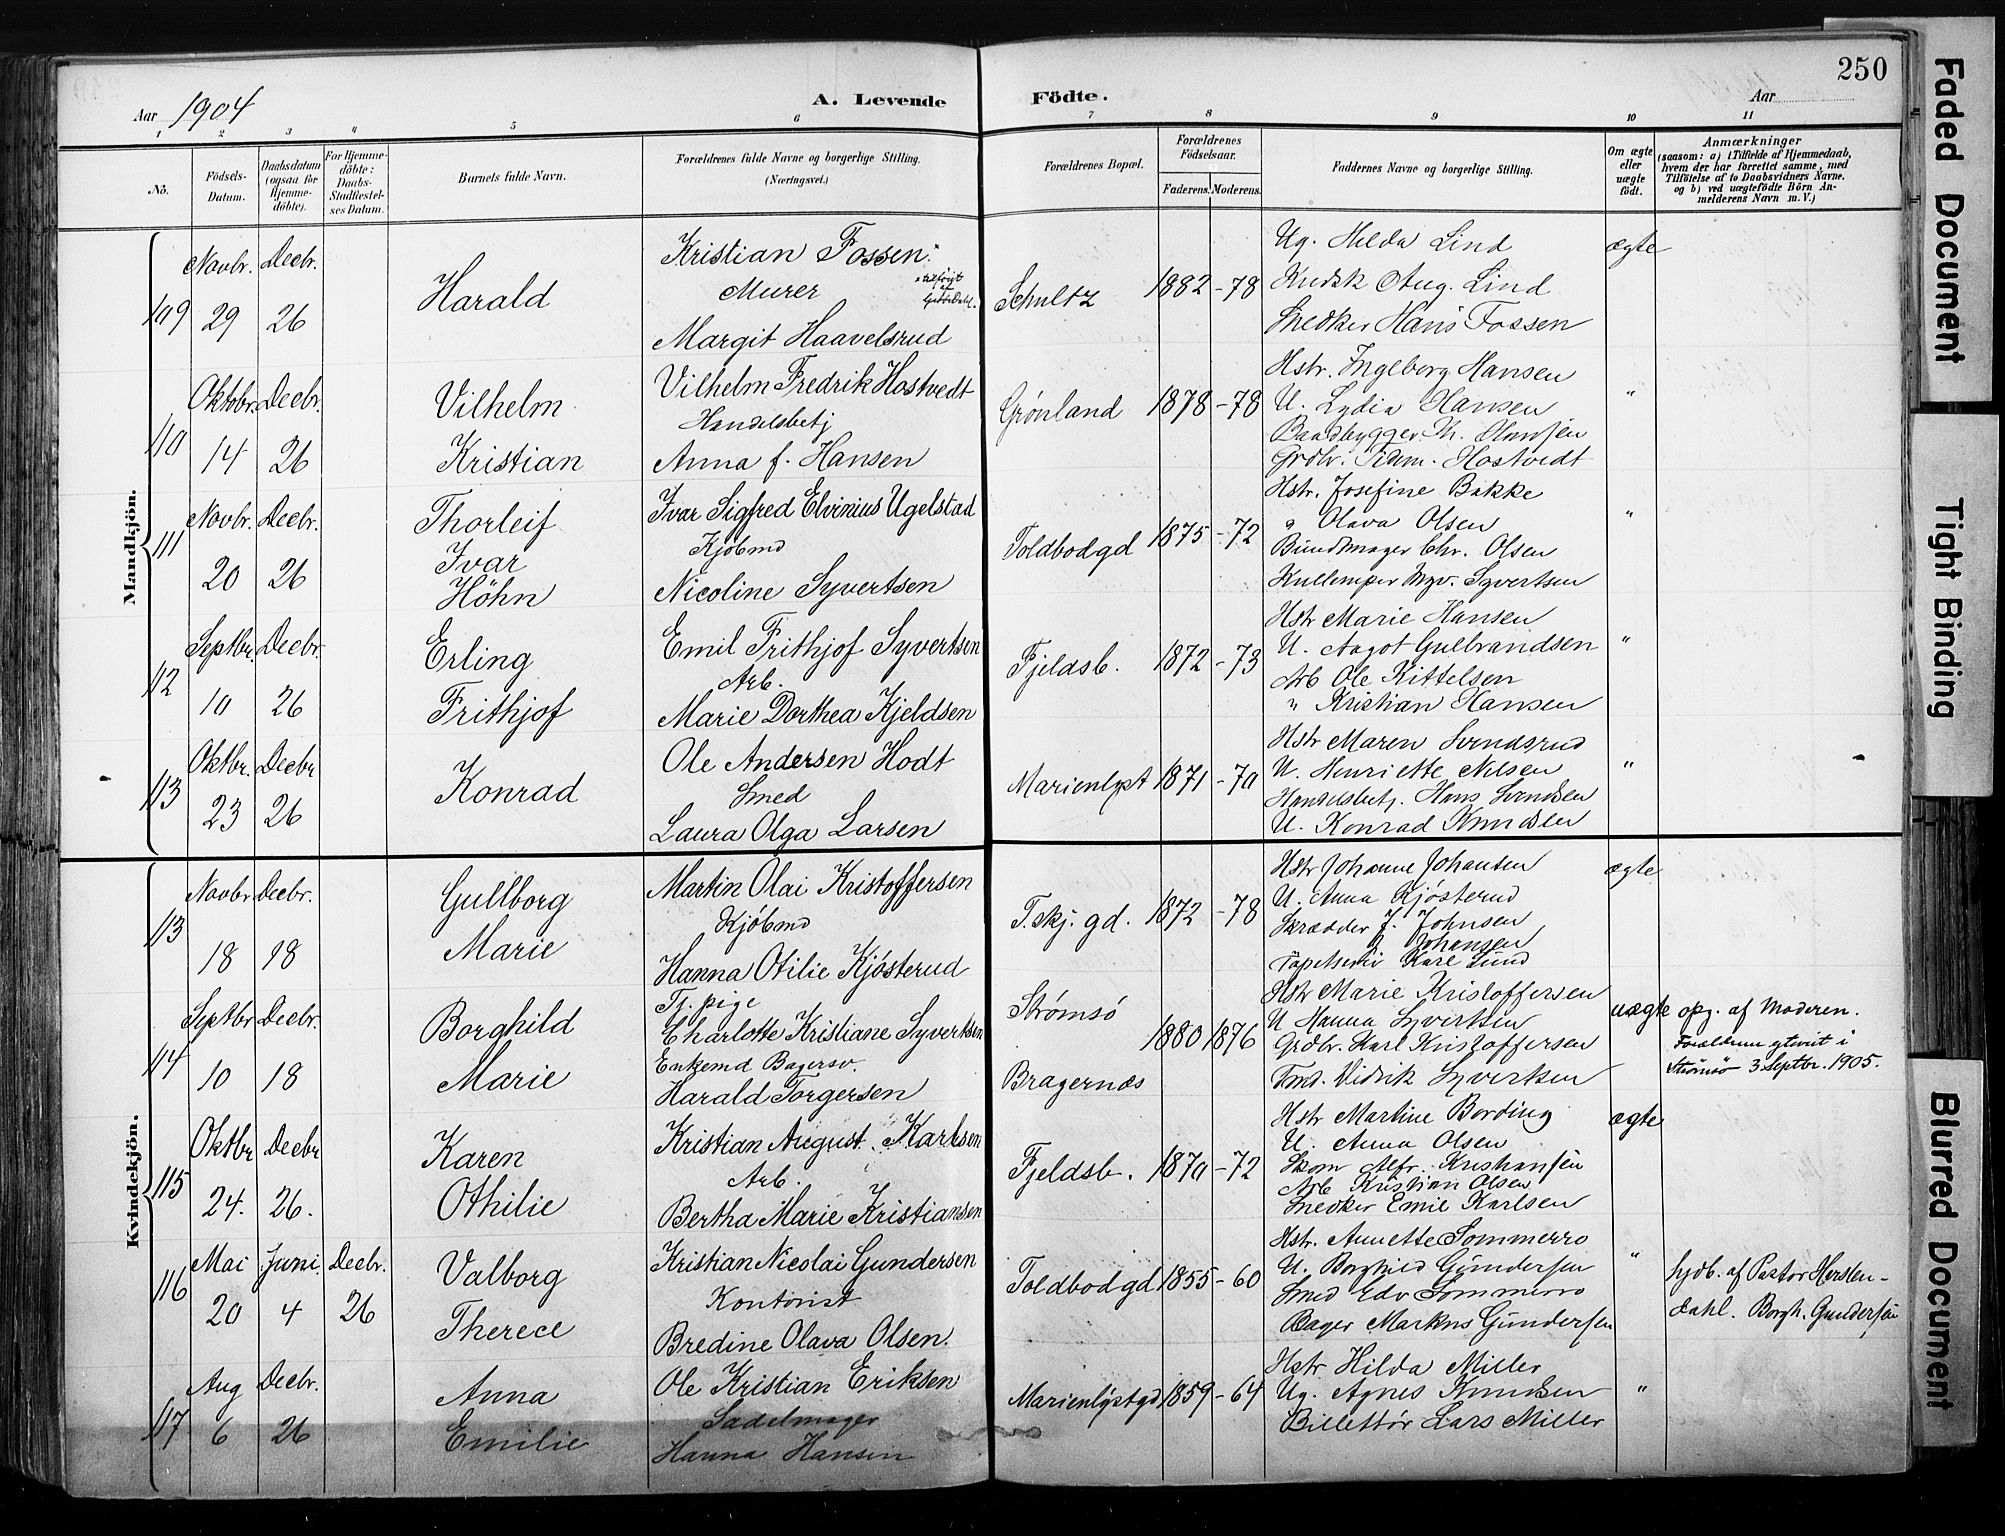 250
Aar 1904
A. Levende Födte.
Aar
1 2 3 4 5 6 7 8 9 10 11
No.
Födsels-Datum.
Daabsdatum (ogsaa for Hjemme-döbte).
For Hjemme-döbte: Daabs-Stadfæstel-ses Datum.
Barnets fulde Navn.
Forældrenes fulde Navne og borgerlige Stilling. (Næringsvei.)
Forældrenes Bopæl.
Forældrenes Födselsaar.
Faderens. Moderens.
Faddernes Navne og borgerlige Stilling.
Om ægte eller uægte födt.
Anmærkninger
(saasom: a) i Tilfælde af Hjemmedaab, hvem der har forrettet samme, med Tilföielse af to Daabsvidners Navne. og b) ved uægtefödte Börn An-melderens Navn m. V.)
Mandkjön.
109 Novbr. 29 Decbr. 26
Harald
Kristian Fossen
Murer
Margit Haavelsrud
Schultz 1882 - 78
Ug. Hilda Lind
Kudsk Aug. Lind
Snedker Hans Fossen
ægte
110 Oktobr. 14 Decbr. 26
Vilhelm
Kristian
Vilhelm Fredrik Hostvedt
Handelsbetj
Anna f. Hansen
Grønland 1878 - 78
Hstr. Ingeborg Hansen
U. Lydia Hansen
Baadbygger Th. Hansen
Grdbr. Hostvedt
"
111 Novbr. 20 Decbr. 26
Thorleif
Ivar
Höhn
Ivar Sigfred Elvinius Ugelstad
Kjøbmd
Nicoline Syvertsen
Toldbodgd 1875 - 72
Hstr. Josefine Bakke
" Olava Olsen
Bundtmager Chr. Olsen
Syvertsen
"
112 Septbr. 10 Decbr. 26
Erling
Frithjof
Emil Frithjof Syvertsen
Arb.
Marie Dorthea Kjeldsen
Fjeldsb. 1872 - 73
Hstr Marie Hansen
U. Aagot Gulbrandsen
Arb Ole Kittelsen
" Kristian Hansen
"
113 Oktbr. 23 Decbr 26
Konrad
Ole Andersen Hodt
Smed
Laura Olga Larsen
Marienlyst 1871 - 70
Hstr Maren Svendsrud
U. Henriette Nilsen
Handelsbetj. Hans Svendsen
U. Konrad Knudsen
"
Kvindekjön.
113 Novbr 18 Decbr. 18
Gullborg
Marie
Martin Olai Kristoffersen
Kjøbmd
Hanna Otilie Kjøsterud
T. skj. gd. 1872 - 78
Hstr Johanne Johansen
U. Anna Kjøsterud
Skrædder J. Johnsen
J. Johansen
Karl Lund
ægte
114 Septbr 10 Decbr. 18
Borghild
Marie
Tj. pige
Charlotte Kristiane Syvertsen
Enkemd Bagersv.
Harald Torgersen
Strømsö
Bragernæs
1880 1876
Hstr Marie Kristoffersen
U Hanna Syvertsen
Grdbr. Karl Kristoffersen
Tmd. Didrik Syvertsen
uægte
opg. af Moderen.
Forældrene gteviet i
Strömsö 3 Septbr. 1905.
115 Oktbr 24. Decbr 26.
Karen
Othilie
Kristian August Karlsen
Arb.
Bertha Marie Kristiansen
Fjeldsb. 1870 - 72
Hstr Martine Bording
U. Anna Olsen
Skom Alfr. Kristiansen
Arb Kristian Olsen
Snedker Emil Karlsen
ægte
116 Mai 20 Juni 4 Decbr. 26
Valborg
Therece
Kristian Nicolai Gundersen
Kontorist
Bredine Olava Olsen.
Toldbodgd 1855 - 60
Hstr. Annette Sommerro
U. Borghild Gundersen
Smed Edv Sommerro
Bager Markus Gundersen
"
hjdb. af Pastor Hersleb-
dahl. Borgh. Gundersen
117 Aug 6 Decbr. 26
Anna
Emilie
Ole Kristian Eriksen
Sadelmager
Hanna Hansen
Marienlystgd 1859 - 64
Hstr. Hilda Miller
Ug. Agnes Knudsen
Billettør Lars Miller
"
Faded Document
Tight Binding
Blurred Document